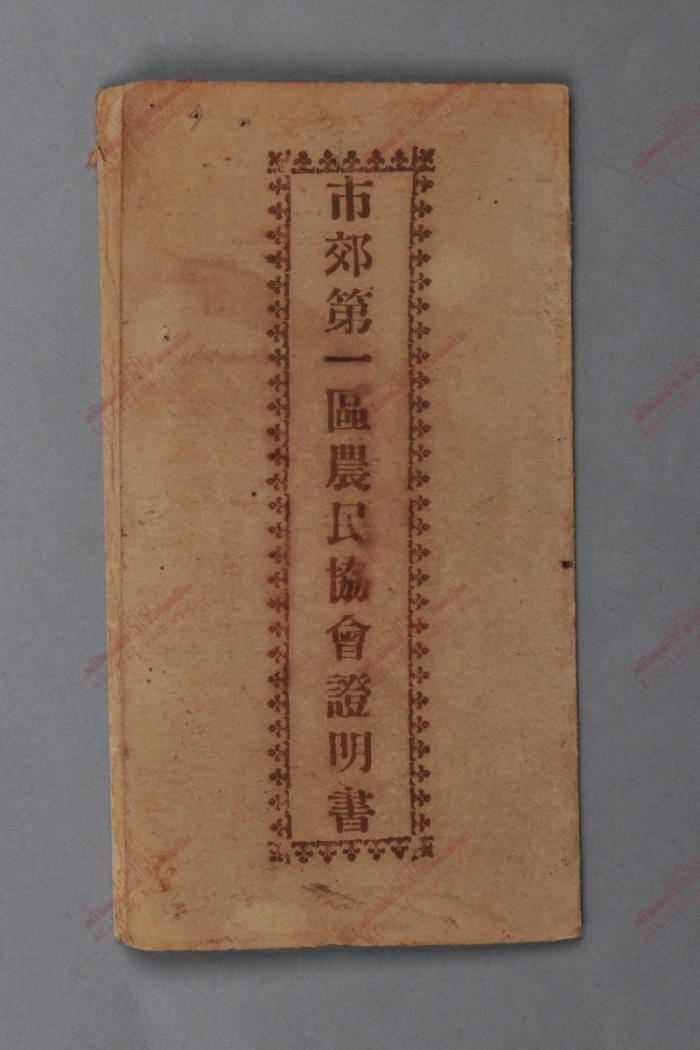 市郊第一區農民協會證明書